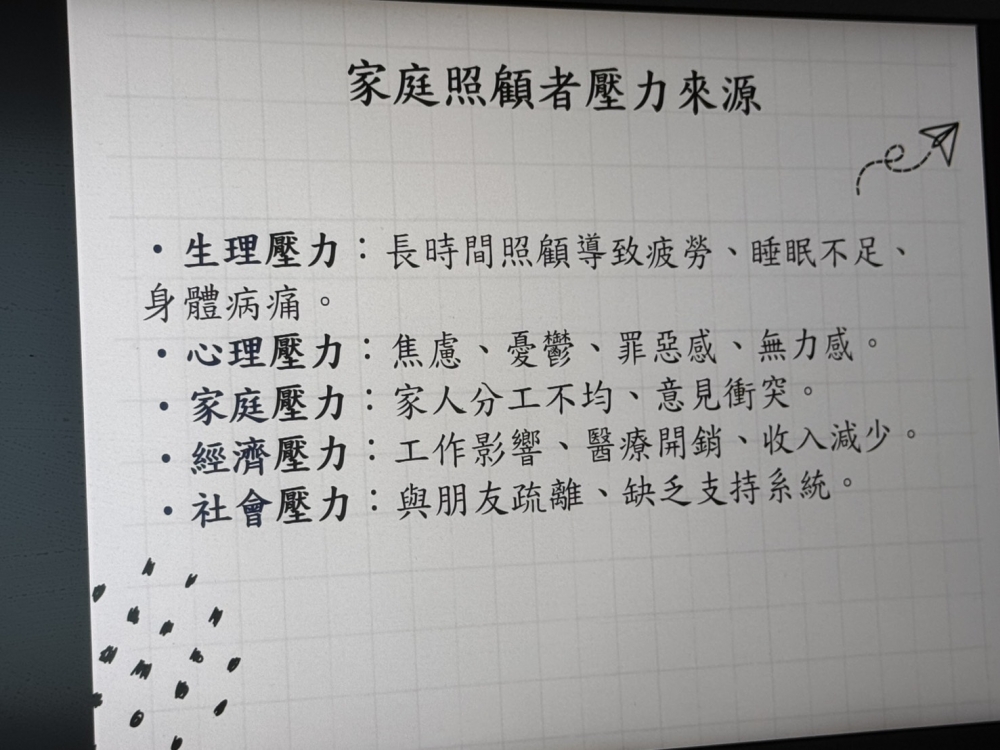 家庭照顧者壓力來源
• 生理壓力：長時間照顧導致疲勞、睡眠不足、
身體病痛。
• 心理壓力：焦慮、憂鬱、罪惡感、無力感。
• 家庭壓力：家人分工不均、意見衝突。
• 經濟壓力：工作影響、醫療開銷、收入減少。
• 社會壓力：與朋友疏離、缺乏支持系統。